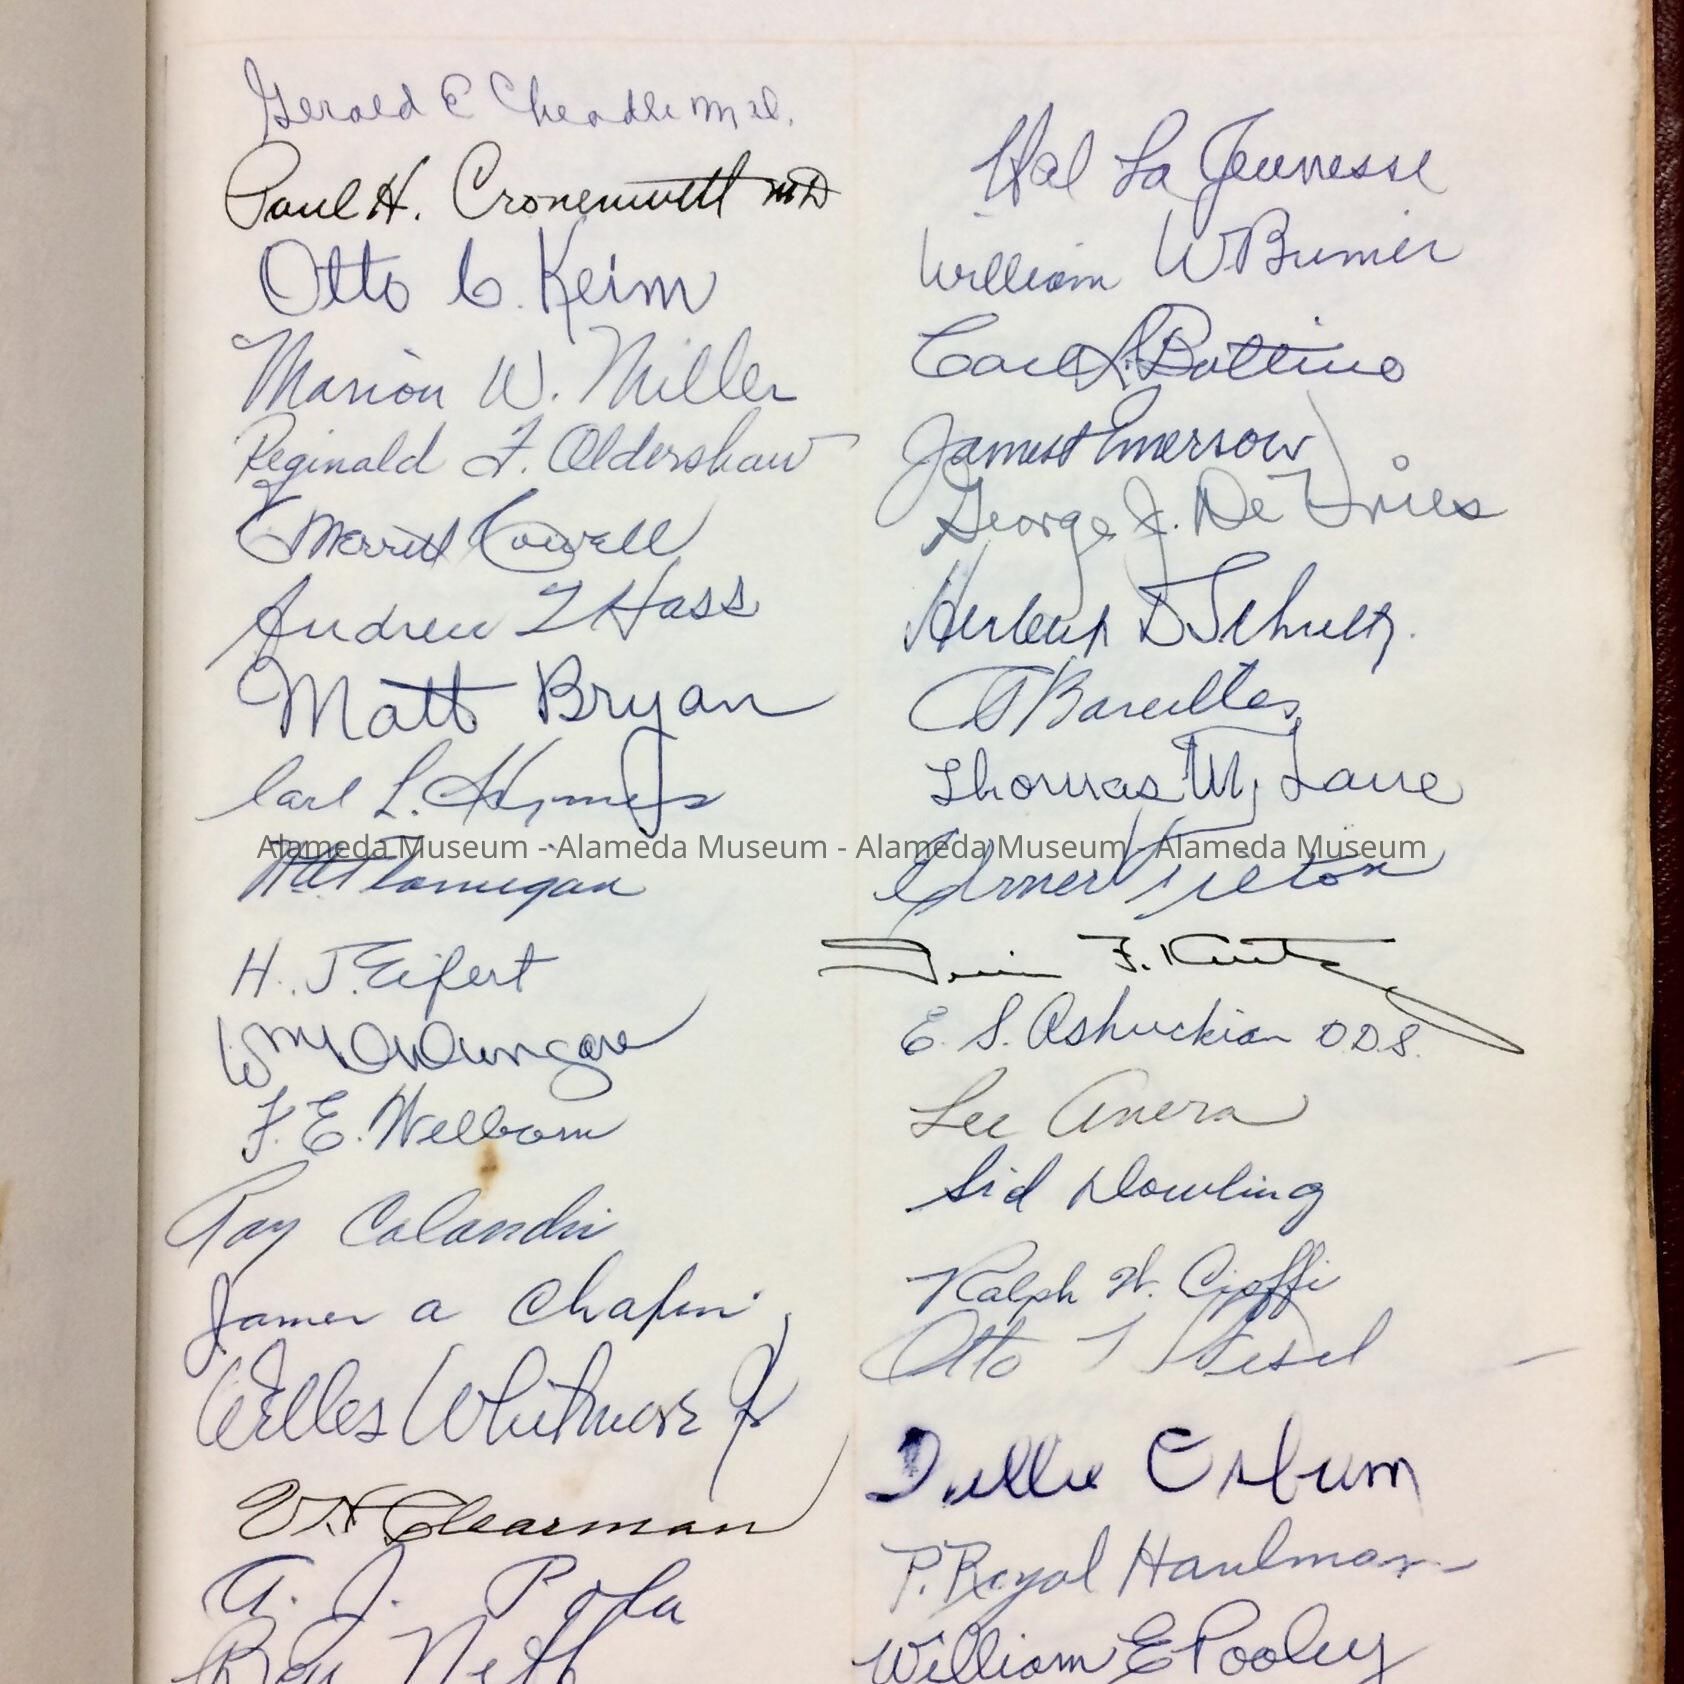 Gerald E Cheadle M.D.
Paul H. Cronemwett MD
Otto C. Keim
Marion W. Miller
Reginald F. Aldershaw
Merritt Cowell
Andrew T Hass
Matt Bryan
Carl L. Hymes
Flannigan
H. J. Eifert
Wm
F. E. Welborn
Ray Calandri
James A Chapin
Welles Whitmore Jr
Clearman
A. J. Pola
Roy Neth
Hal La Jeunesse
William W Bumer
Carl Bottino
James Emerson
George J. De Vries
Herbert D Schultz.
Bareilles
Thomas M Lane
F. Kurtz
E. S. Ashuckian D.D.S.
Lee Anera
Sid Dowling
Ralph W. Cioffi
Otto
Osburn
P. Royal Haulman
William E Pooley
Alameda Museum - Alameda Museum - Alameda Museum - Alameda Museum